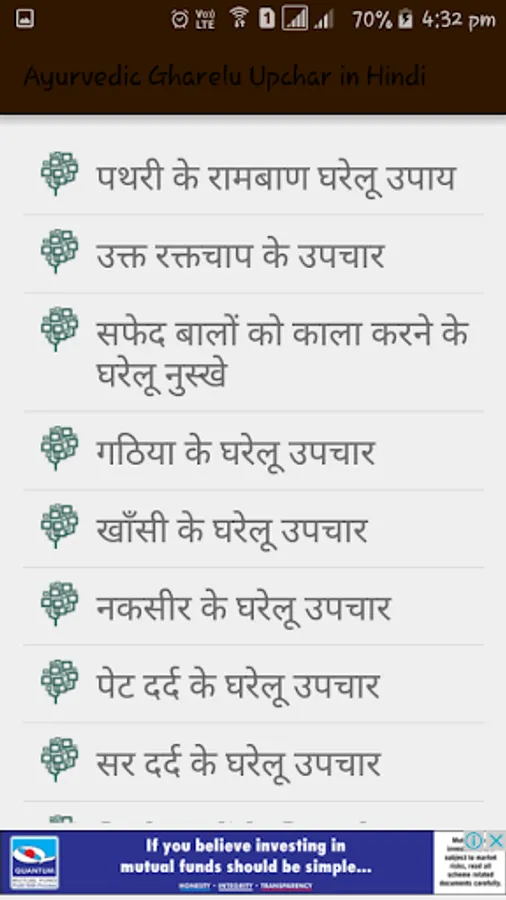 Vo))
LTE
1
70%
4:32 pm
Ayurvedic Gharelu Upchar in Hindi
पथरी के रामबाण घरेलू उपाय
उक्त रक्तचाप के उपचार
सफेद बालों को काला करने के
घरेलू नुस्खे
गठिया के घरेलू उपचार
खाँसी के घरेलू उपचार
नकसीर के घरेलू उपचार
पेट दर्द के घरेलू उपचार
सर दर्द के घरेलू उपचार
QUANTUM
MUTUAL FUND
If you believe investing in
mutual funds should be simple...
HONESTY • INTEGRITY • TRANSPARENCY
subject to market
risks, read all
scheme related
documents carefully.